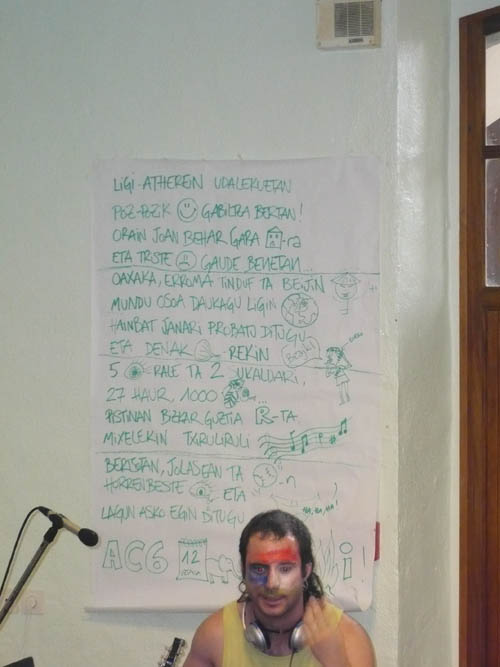 LIGI-ATHEREIN UDALEKUETAN
POZ-POZIK GABILTZA BERTAN!
ORAIN JOAN BEHAR GARA -ra
ETA TRISTE GAUDE BENETAN...
OAXAKA, ERROMA TINDUF TA BEIJIN
MUNDU OSOA DAUKAGU LIGIN
HAINBAT JANARI PROBATU DITUGU
ETA DENAK REKIN
5 RALE TA 2 UKALDARI,
27 HAUR, 1000 ...
PISTINAN BIZKAR GUZTIA R-TA
MIXELEKIN TXIRULIRULI
BERTSOTAN, JOLASEAN TA -n
HORRENBESTE ETA
LAGUN ASKO EGIN DITUGU HA, HA, HA!
AC6 12 i!